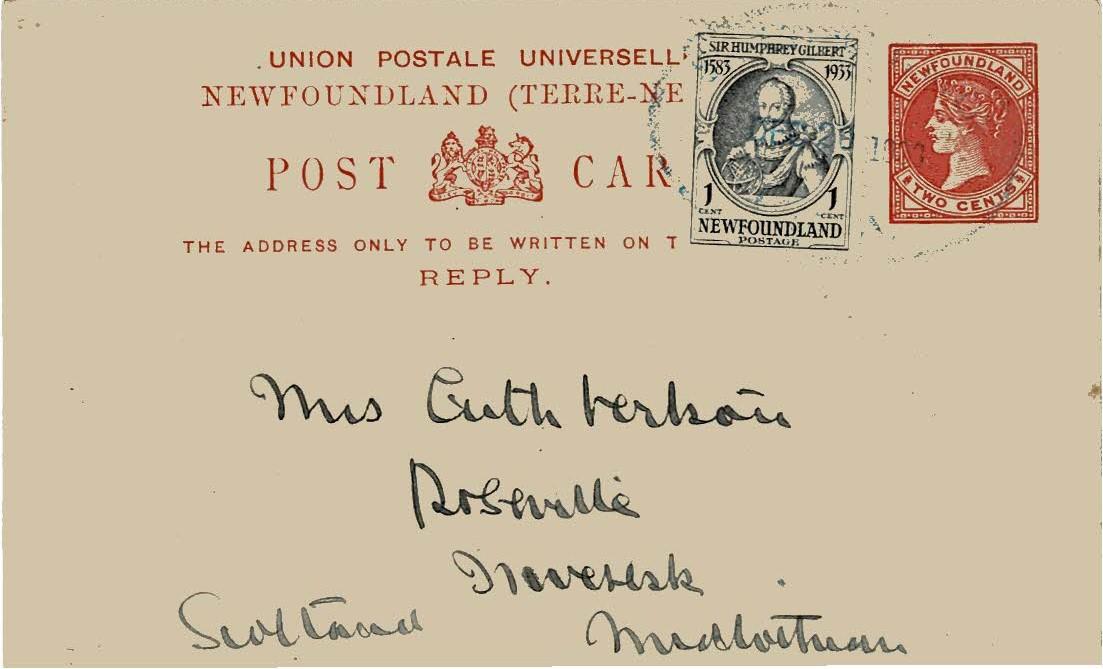 UNION POSTALE UNIVERSELL
NEWFOUNDLAND (TERRE-NE
POST CAR
THE ADDRESS ONLY TO BE WRITTEN ON T
REPLY.
SIR HUMPHREY GILBERT
1583 1933
1 CENT 1 CENT
NEWFOUNDLAND
POSTAGE
NEWFOUNDLAND
TWO CENTS
Mrs Cuthbertson
Roseville
Inveresk
Scotland Midlothian